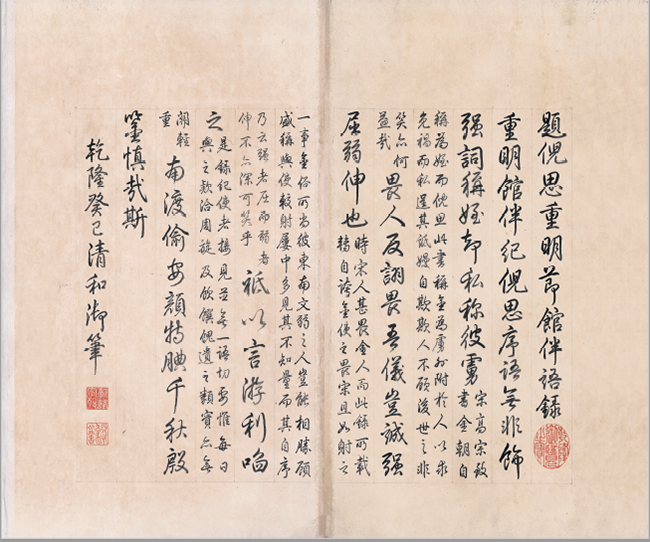 題倪思重明節館伴語錄
重明館伴紀倪思序語無非飾
强詞稱姪却私稱彼虜
宋高宗致
書金朝自
稱為姪而倪思此書稱金為虜附於人以求
免禍而私逞其詆嫚自欺欺人不顧後世之非
笑亦何
益哉
畏人反詡畏吾儀豈誠强
屈弱伸也
時宋人甚畏金人而此錄可載
轉自誇金使之畏宋且如射之
一事無俗可當彼東南文弱之人豈能相勝顧
盛稱與使較射屢中多見其不知量而其自序
乃云强者屈而弱者
伸不亦深可笑乎
祗以言游利啗
之
是錄紀使者接見並無一語切要惟每日
與之款洽周旋及飲饌餽遺之類實亦無
關輕
重
南渡偷安顏特腆千秋殷
鑒慎哉斯
乾隆癸巳清和御筆